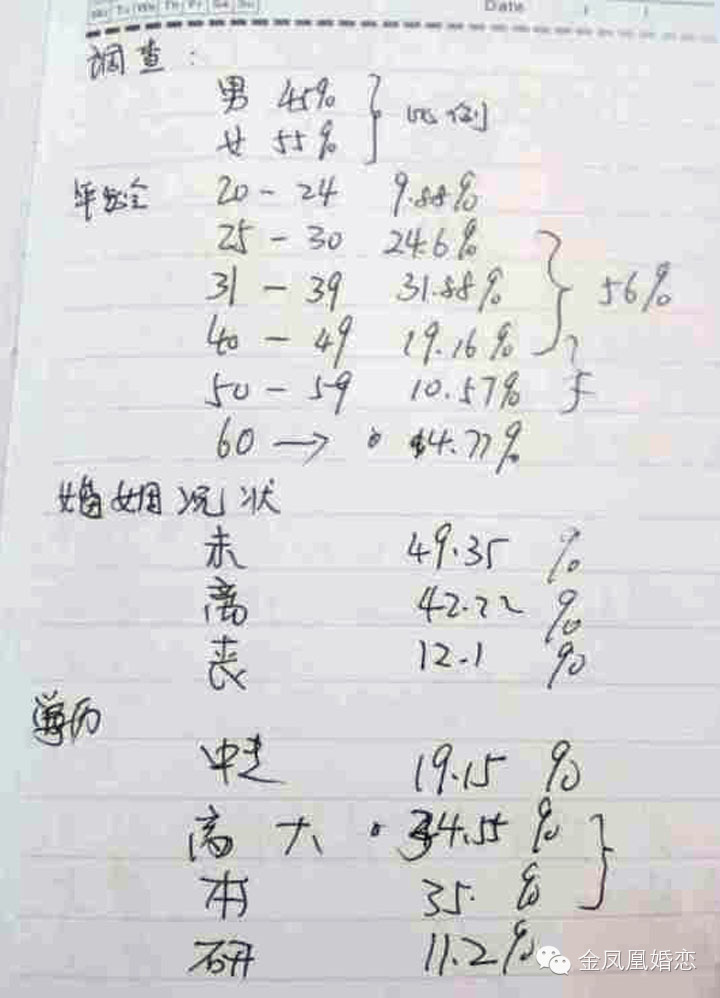 Mo Tu We Th Fr Sa Su Date / /
调查:
男 45%
女 55%
比例
年龄
20 - 24 9.88%
25 - 30 24.6%
31 - 39 31.88%
56%
40 - 49 19.16%
50 - 59 10.57%
60 → 4.77%
婚姻况状
未 49.35 %
离 42.22 %
丧 12.1 %
学历
中专 19.15 %
高 大 34.55 %
本 35. %
研 11.2%
金凤凰婚恋